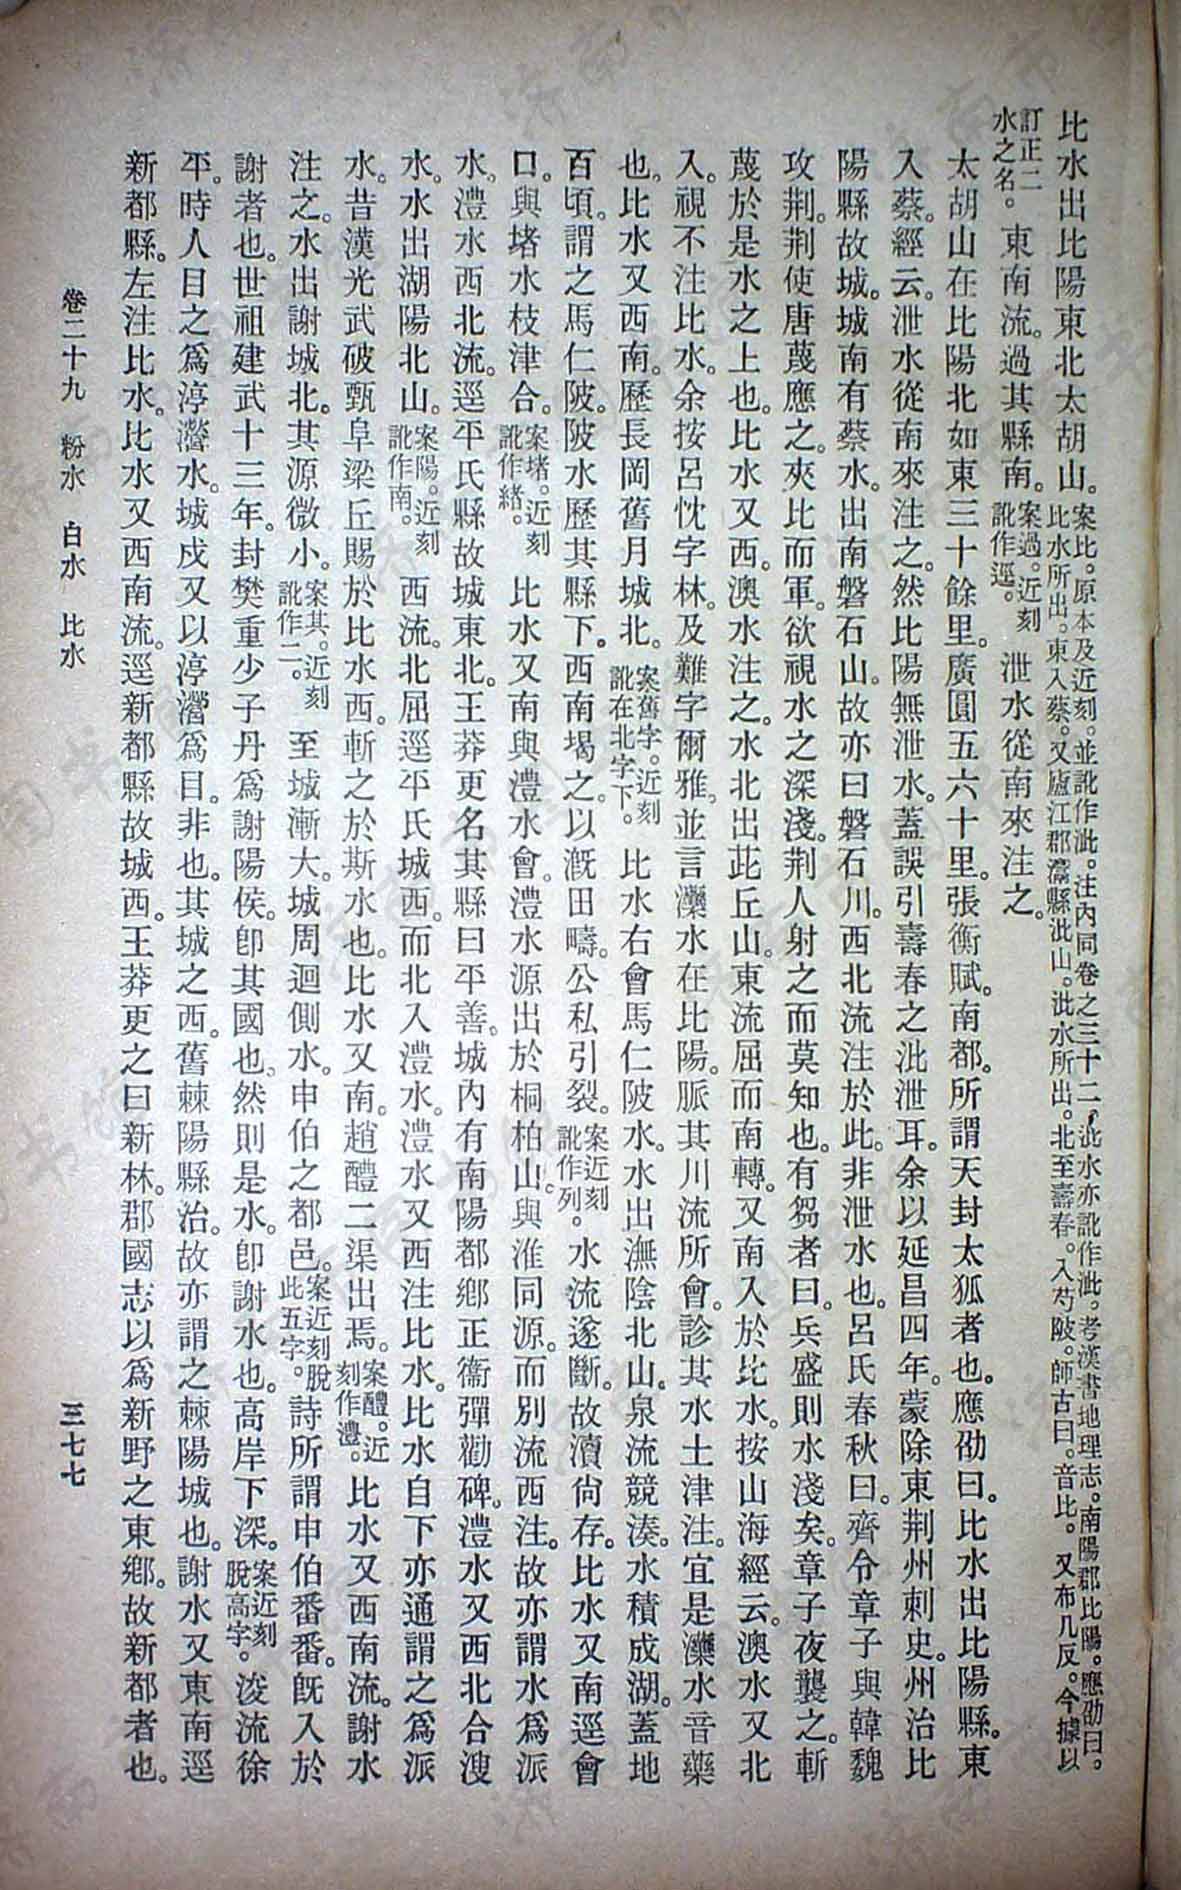 比水出比陽東北太胡山。案比。原本及近刻。並訛作泚。注內同卷之三十二沘水亦訛作泚。考漢書地理志。南陽郡比陽。應劭曰。比水所出。東入蔡。又廬江郡灊縣沘山。沘水所出。北至壽春。入芍陂。師古曰。音比。又布几反。今據以
訂正二水之名。東南流。過其縣南。案過。近刻訛作逕。泄水從南來注之。
太胡山在比陽北如東三十餘里。廣圓五六十里。張衡賦。南都。所謂天封太狐者也。應劭曰。比水出比陽縣。東
入蔡。經云。泄水從南來注之。然比陽無泄水。蓋誤引壽春之沘泄耳。余以延昌四年。蒙除東荆州刺史。州治比
陽縣故城。城南有蔡水。出南磐石山。故亦曰磐石川。西北流注於此。非泄水也。呂氏春秋曰。齊令章子與韓魏
攻荆。荆使唐蔑應之。夾比而軍。欲視水之深淺。荆人射之而莫知也。有芻者曰。兵盛則水淺矣。章子夜襲之。斬
蔑於是水之上也。比水又西。澳水注之。水北出茈丘山。東流屈而南轉。又南入於比水。按山海經云。澳水又北
入。視不注比水。余按呂忱字林。及難字爾雅。並言灤水在比陽。脈其川流所會。診其水土津注。宜是灤水音藥
也。比水又西南。歷長岡舊月城北。案舊字。近刻訛在北字下。比水右會馬仁陂水。水出潕陰北山。泉流競湊。水積成湖。蓋地
百頃。謂之馬仁陂。陂水歷其縣下。西南堨之。以漑田疇。公私引裂。案近刻訛作列。水流遂斷。故瀆尙存。比水又南逕會
口。與堵水枝津合。案堵。近刻訛作緒。比水又南與澧水會。澧水源出於桐柏山。與淮同源。而別流西注。故亦謂水爲派
水。澧水西北流。逕平氏縣故城東北。王莽更名其縣曰平善。城內有南陽都鄉正衞彈勸碑。澧水又西北合溲
水。水出湖陽北山。案陽。近刻訛作南。西流。北屈逕平氏城西。而北入澧水。澧水又西注比水。比水自下亦通謂之爲派
水。昔漢光武破甄阜梁丘賜於比水西。斬之於斯水也。比水又南。趙醴二渠出焉。案醴。近刻作澧。比水又西南流。謝水
注之。水出謝城北。其源微小。案其。近刻訛作二。至城漸大。城周迴側水。申伯之都邑。案近刻脫此五字。詩所謂申伯番番。旣入於
謝者也。世祖建武十三年。封樊重少子丹爲謝陽侯。卽其國也。然則是水。卽謝水也。高岸下深。案近刻脫高字。浚流徐
平。時人目之爲渟瀯水。城戍又以渟瀯爲目。非也。其城之西。舊棘陽縣治。故亦謂之棘陽城也。謝水又東南逕
新都縣。左注比水。比水又西南流。逕新都縣故城西。王莽更之曰新林。郡國志以爲新野之東鄉。故新都者也。
卷二十九 粉水 白水 比水 三七七